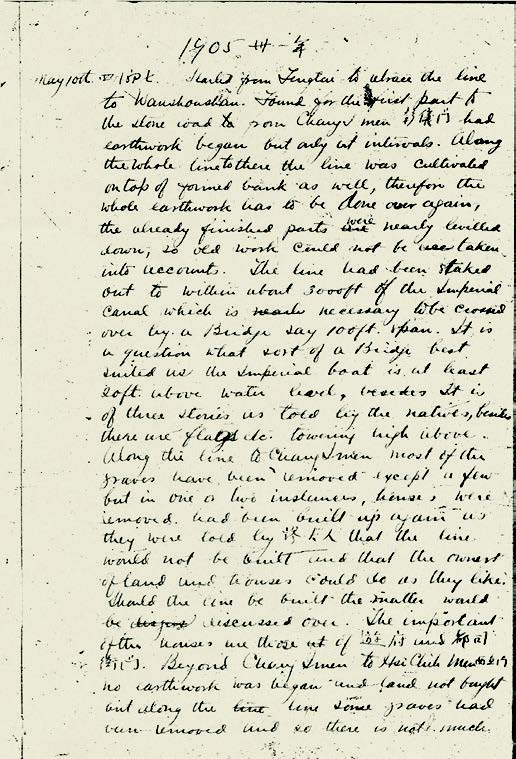 1905
May 10th Started from Fengtai to atrace the line
to Wanshoushan. Found for the first part to
the stone road to from Changs men had
earthwork began but only at intervals. Along
the whole line to there the line was cultivated
on top of formed bank as well, therefore the
whole earthwork has to be done over again,
the already finished parts were nearly levelled
down, so old work could not be taken
into accounts. The line had been staked
out to within about 3000ft of the Imperial
Canal which is necessary to be crossed
over by a Bridge say 100ft. span. It is
a question what sort of a Bridge best
suited as the Imperial boat is at least
20ft. above water level, besides It is
of three stories as told by the natives, besides
there are flags etc. towering high above.
Along the line to Changs men most of the
graves have been removed except a few
but in one or two instances, houses were
removed had been built up again as
they were told by that the line
would not be built and that the owners
of land and houses could do as they like.
Should the line be built the matter would
be discussed over. The important
of the houses are those at of and
Beyond Changs men to Hsi Chih Men
no earthwork was began and land not bought
but along the line some graves had
been removed and so there is not much